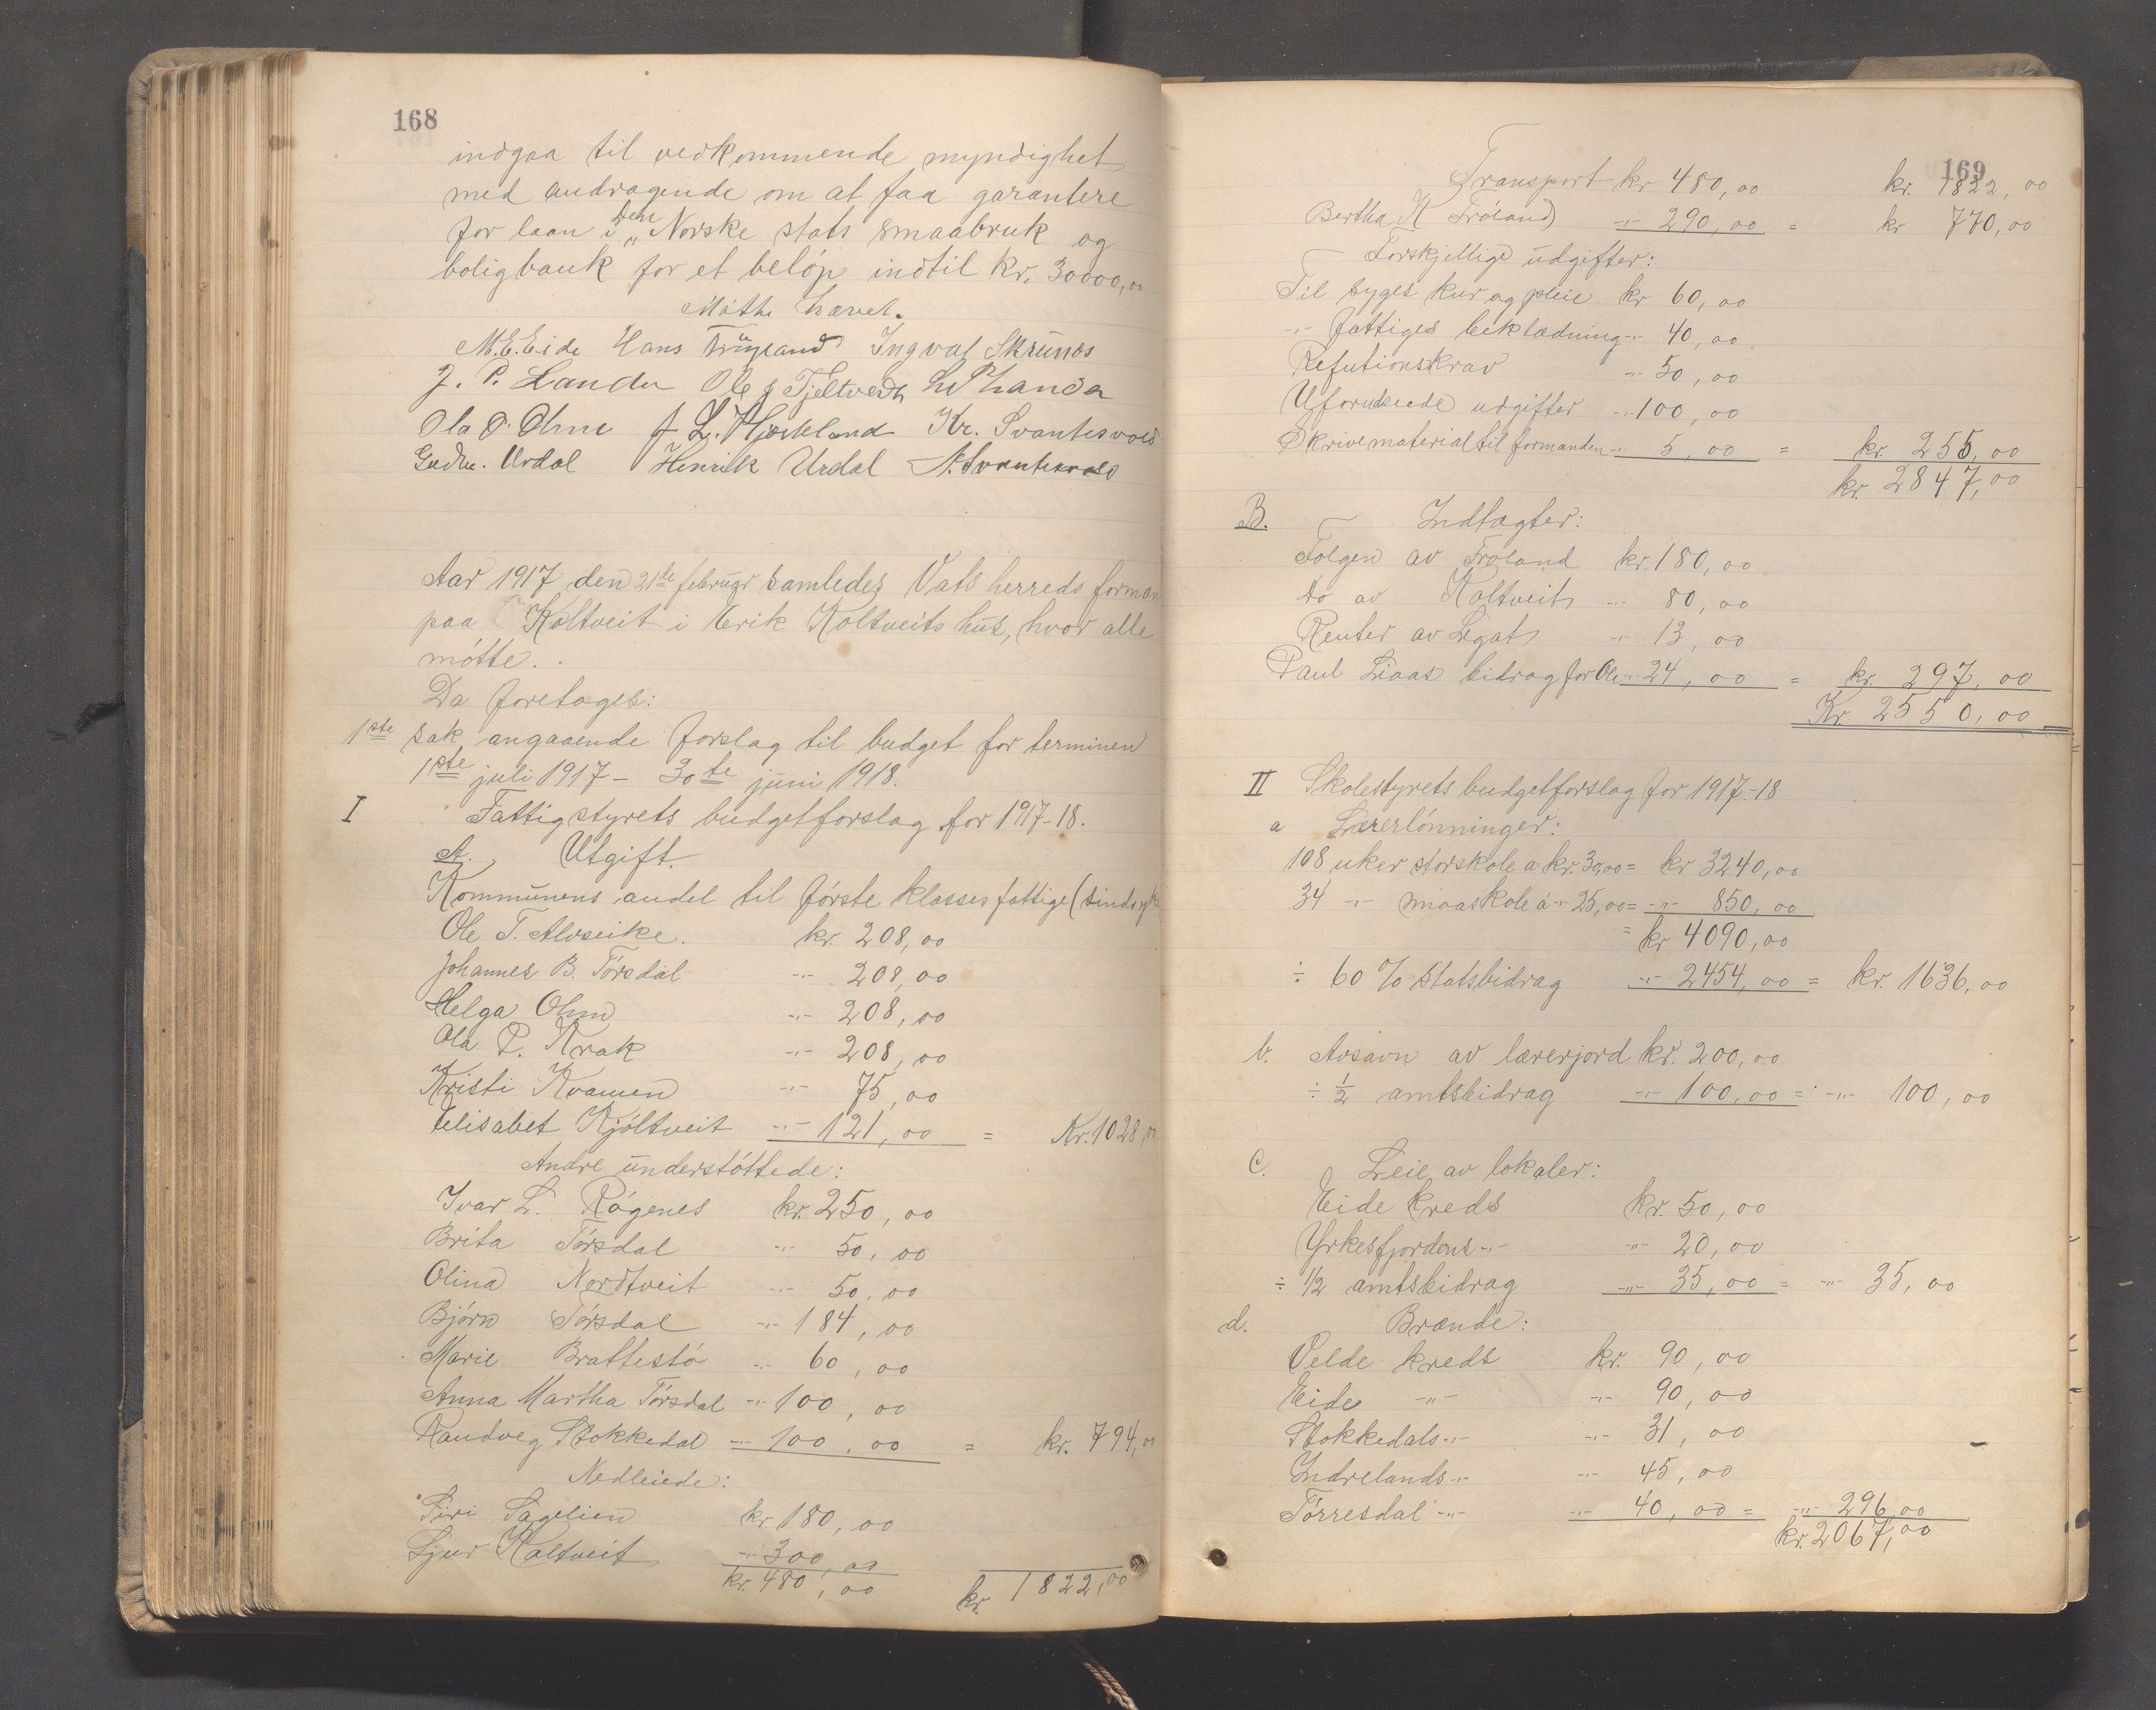 168
indgaa til vedkommende myndighet
med andragende om at faa garantere
for laan i „Den Norske stats smaabruk og
boligbank for et beløp indtil kr. 30000,00
Møtte hævet.
M.E.Eide Hans Ingval Skrunes
J. P. Landa Ole J Fjeltvedt
Ola O. Olme J. L. Hjorteland Kr. Svantesvold
Gudm. Urdal Henrik Urdal A. Svantesvold
Aar 1917 den 21de februar samledes Vats herreds forman
paa Koltveit i Erik Koltveits hus, hvor alle
møtte.
Da foretages:
1ste sak angaaende forslag til budget for terminen
1ste juli 1917 - 30te juni 1918.
I Fattigstyrets budgetforslag for 1917-18.
A. Utgift.
Kommunens andel til første klasses fattige (sindsyke
Ole T. Alvseike. kr. 208,00
Johannes B. Tørsdal -"- 208,00
Helga Olmi -"- 208,00
Ola P. Krak -"- 208,00
Kristi Kvamen -"- 75,00
Elisabet Kjøltveit -"- 121,00 = Kr. 1028,00
Andre understøttede:
Ivar L. Røgenes kr. 250,00
Brita Tørsdal -"- 50,00
Olina Nordtveit -"- 50,00
Bjørn Tørsdal -"- 184,00
Marie Brattestø -"- 60,00
Anna Martha Tørsdal -"- 100,00
Randveg Stokkedal -"- 100,00 = kr. 794,00
Nedleiede:
Siri Sagelien kr 180,00
Sjur Koltveit -"- 300,00
kr. 480,00 kr. 1822,00
169
Transport kr 480,00 kr. 1822,00
Bertha K Frøland -"- 290,00 = kr 770,00
Forskjellige udgifter:
Til syges kur og pleie kr 60,00
-"- fattiges beklædning -"- 40,00
Refutionskrav -"- 50,00
Uforudseede udgifter -"- 100,00
Skrivematerial til formanden -"- 5,00 = kr. 255,00
kr. 2847,00
B. Indtægter:
Følgen av Frøland kr. 180,00
do av Koltveit -"- 80,00
Renter av Legat -"- 13,00
Paul Liaas bidrag for Ole -"- 24,00 = kr. 297,00
Kr 2550,00
II Skolestyrets budgetforslag for 1917-18
a Lærerlønninger:
108 uker storskole a kr. 30,00 = kr 3240,00
34 -"- smaaskole á -"- 25,00 = -"- 850,00
= kr 4090,00
÷ 60 % statsbidrag -"- 2454,00 = kr. 1636,00
b. Avsavn av lærerjord kr. 200,00
÷ 1/2 amtsbidrag -"- 100,00 = -"- 100,00
c. Leie av lokaler:
Eide kreds kr. 50,00
Yrkesfjordens -"- -"- 20,00
÷ 1/2 amtsbidrag -"- 35,00 = -"- 35,00
d. Brænde:
Velde kreds kr. 90,00
Eide -"- -"- 90,00
Stokkedals -"- -"- 31,00
Indrelands -"- -"- 45,00
Tørresdal -"- -"- 40,00 = -"- 296,00
kr. 2067,00